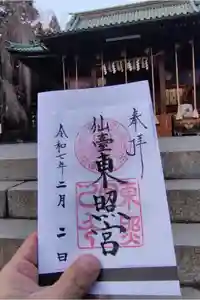 奉拝
仙臺東照宮
令和七年二月二日